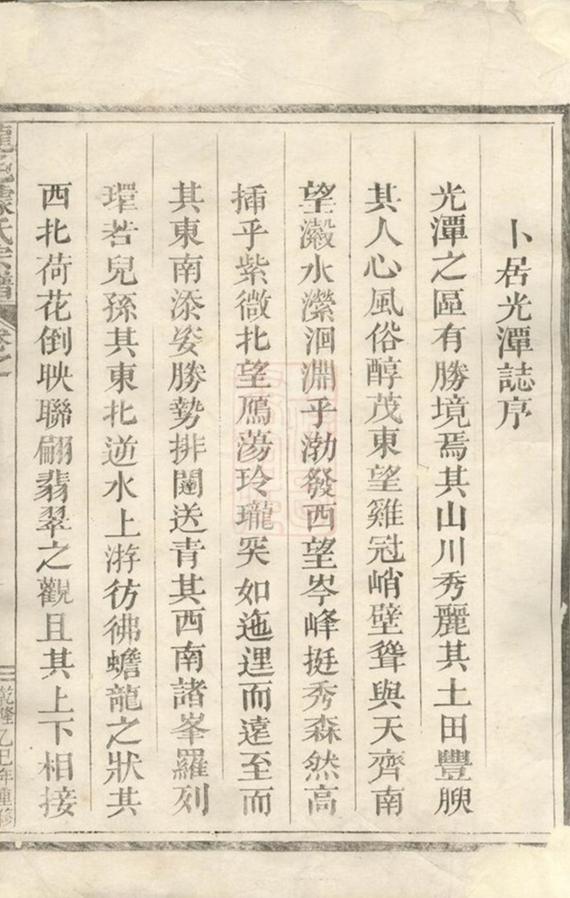 卜居光潭誌序
光潭之區有勝境焉其山川秀麗其土田豐腴
其人心風俗醇茂東望雞冠峭壁聳與天齊南
望瀫水瀠洄淵乎渤發西望岑峰挺秀森然高
插乎紫微北望鴈蕩玲瓏突如迤逦而遠至而
其東南添姿勝勢排闥送青其西南諸峯羅列
環若兒孫其東北逆水上游彷彿蟾龍之狀其
西北荷花倒映聯翩翡翠之觀且其上下相接
氏宗譜
乾隆乙巳年重修